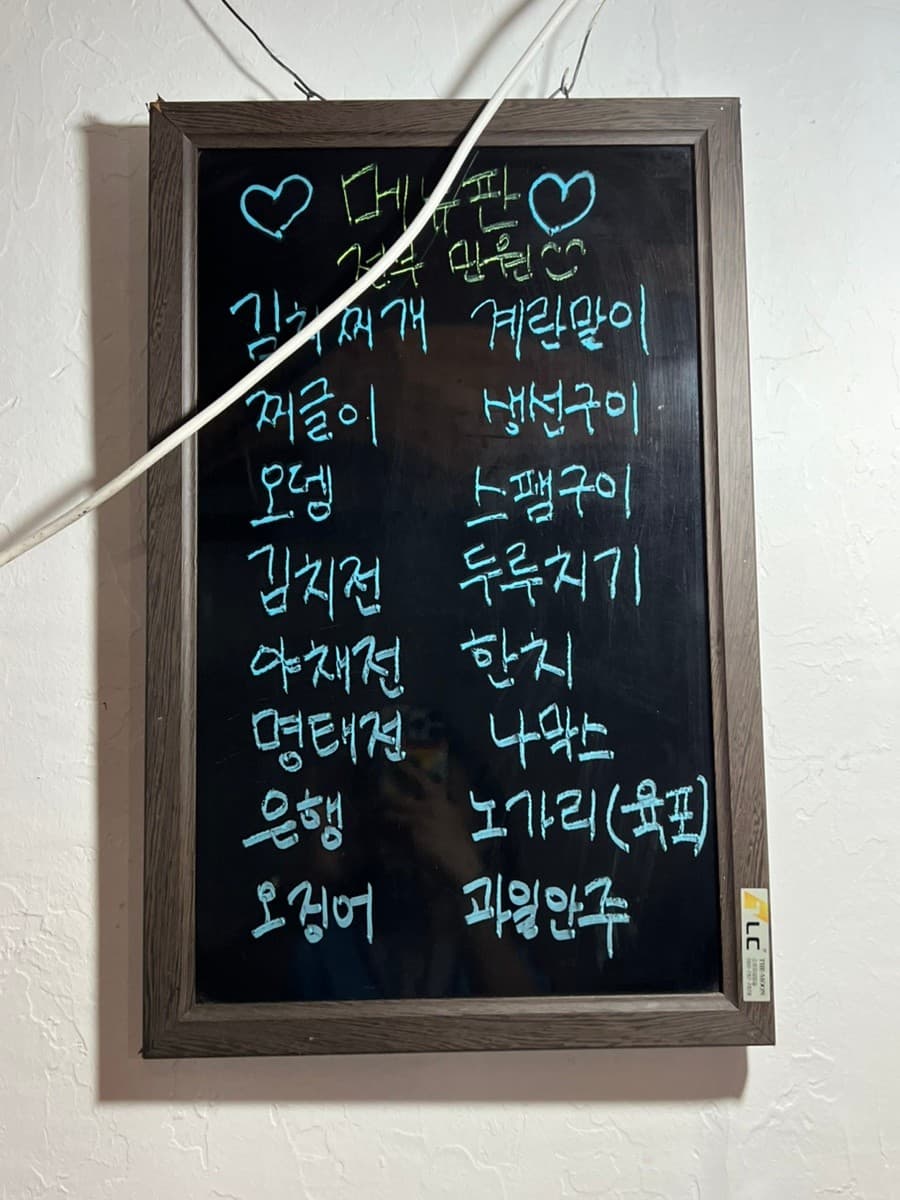 메뉴판
전부 만원
김치찌개 계란말이
찌글이 생선구이
오뎅 스팸구이
김치전 두루치기
야채전 한치
명태전 나막스
은행 노가리(육포)
오징어 과일안주
LC